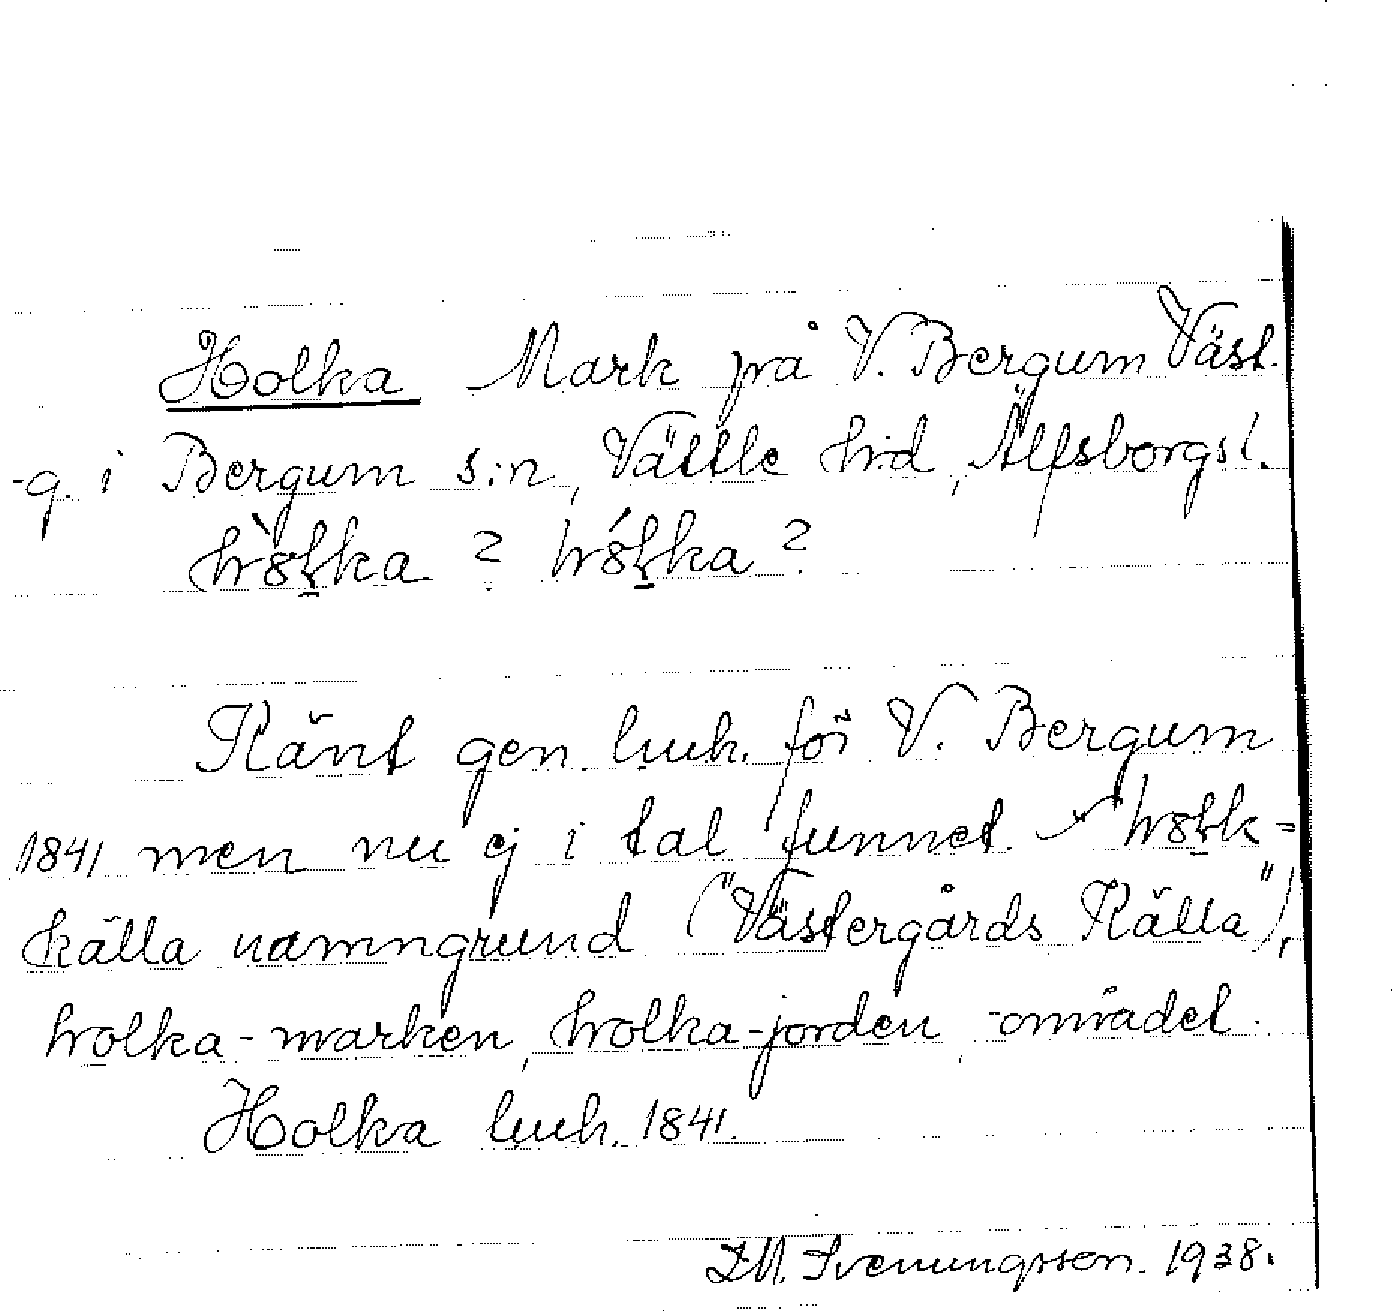 Holka Mark på V. Bergum Väst.
-g. i Bergum s:n, Vättle hd, Älfsborgs l.
hòlka ? hólka ?
Känt gen. luh. för V. Bergum
1841 men nu ej i tal funnet. holk-
källa namngrund ("Västergårds Källa"),
holka-marken, holka-jorden, -området.
Holka luh. 1841.
Svenungsson. 1938.